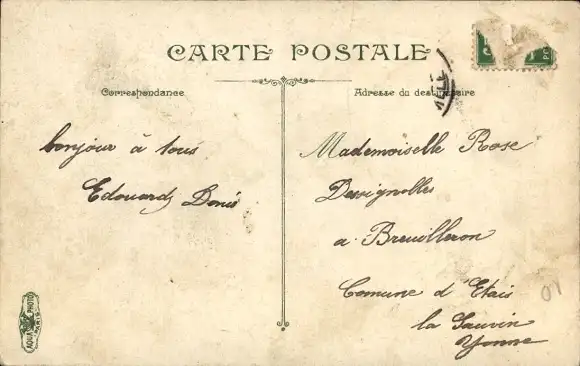 CARTE POSTALE
Correspondance
Adresse du destinataire
bonjour à tous
Edouard Denis
Mademoiselle Rose
Desvignolles
a Breuilleron
Comune d'Etais
la Sauvin
Yonne
AQUA PHOTO
PARIS